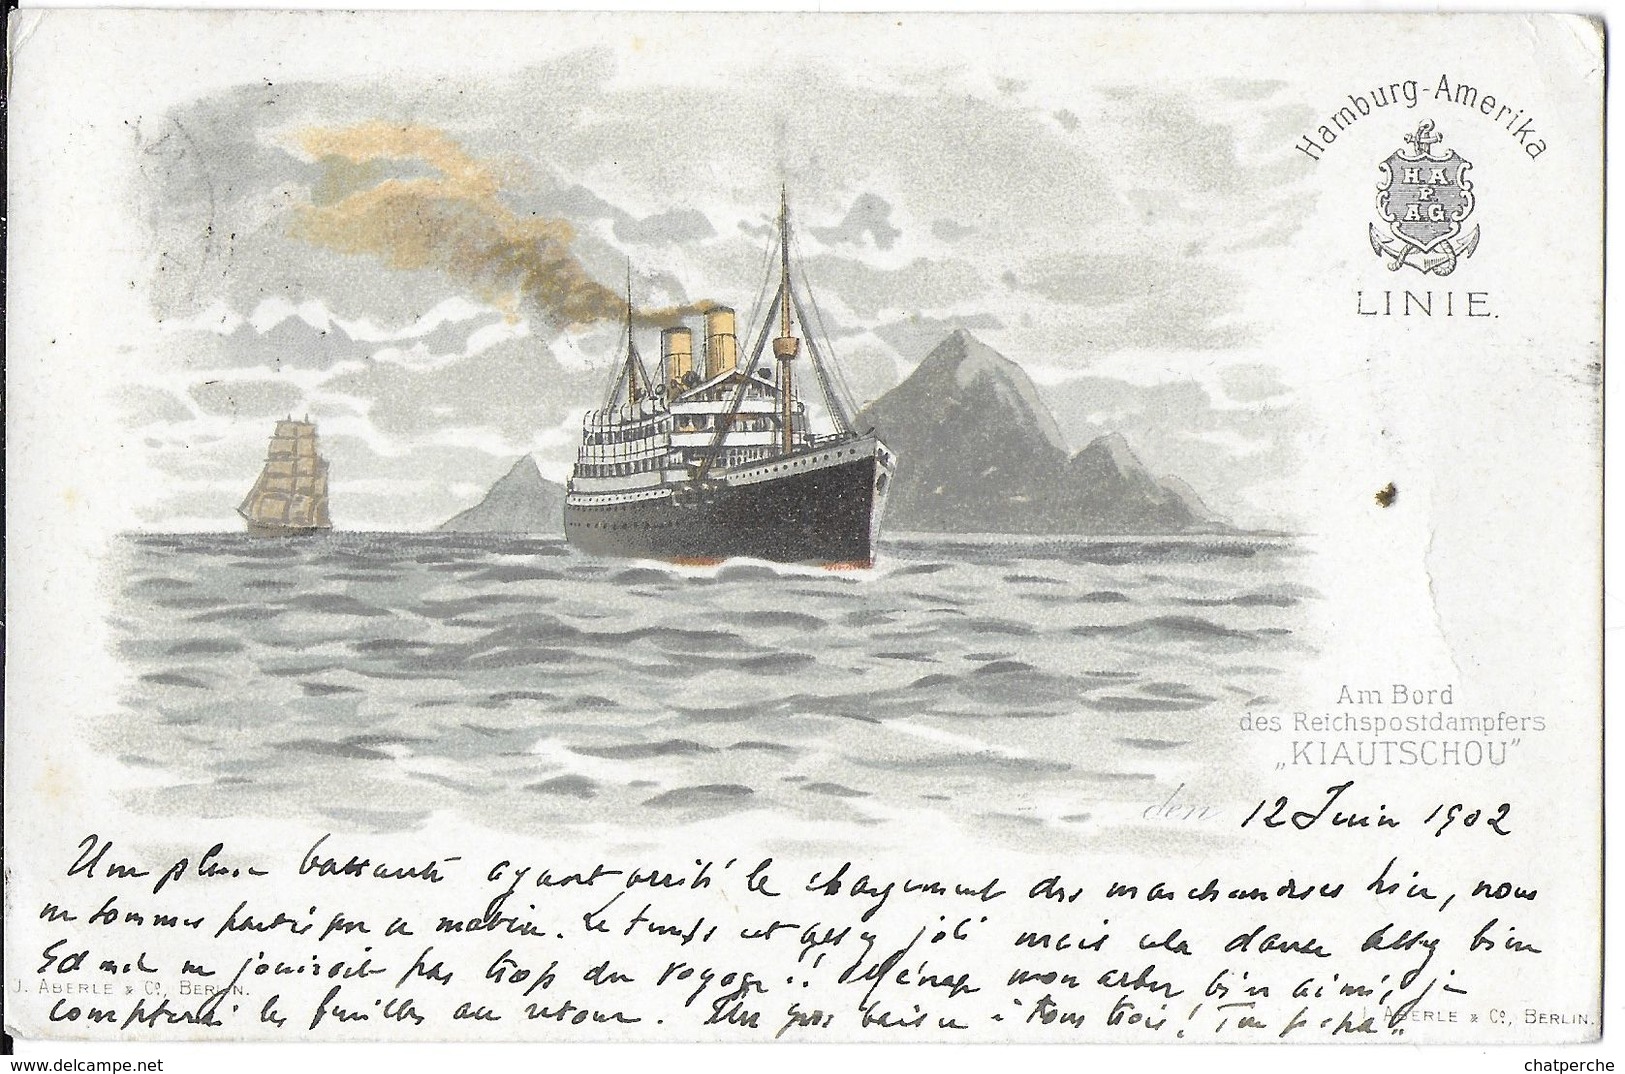 Hamburg-Amerika
H. A.
P.
A.G
LINIE.
Am Bord
des Reichspostdampfers
„KIAUTSCHOU”
den 12 Juin 1902
Une pluie battante ayant arrêté le chargement des marchandises hier, nous
ne sommes partis que ce matin. Le temps est assez joli mais cela danse assez bien
Edmée ne jouirait pas trop du voyage!! Ménage mon arbre bien aimé, je
J. ABERLE & Co, BERLIN.
compterai les feuilles au retour. Un gros baiser à tous trois! Ton papa
J. ABERLE & Co, BERLIN.
chatperche
www.delcampe.net